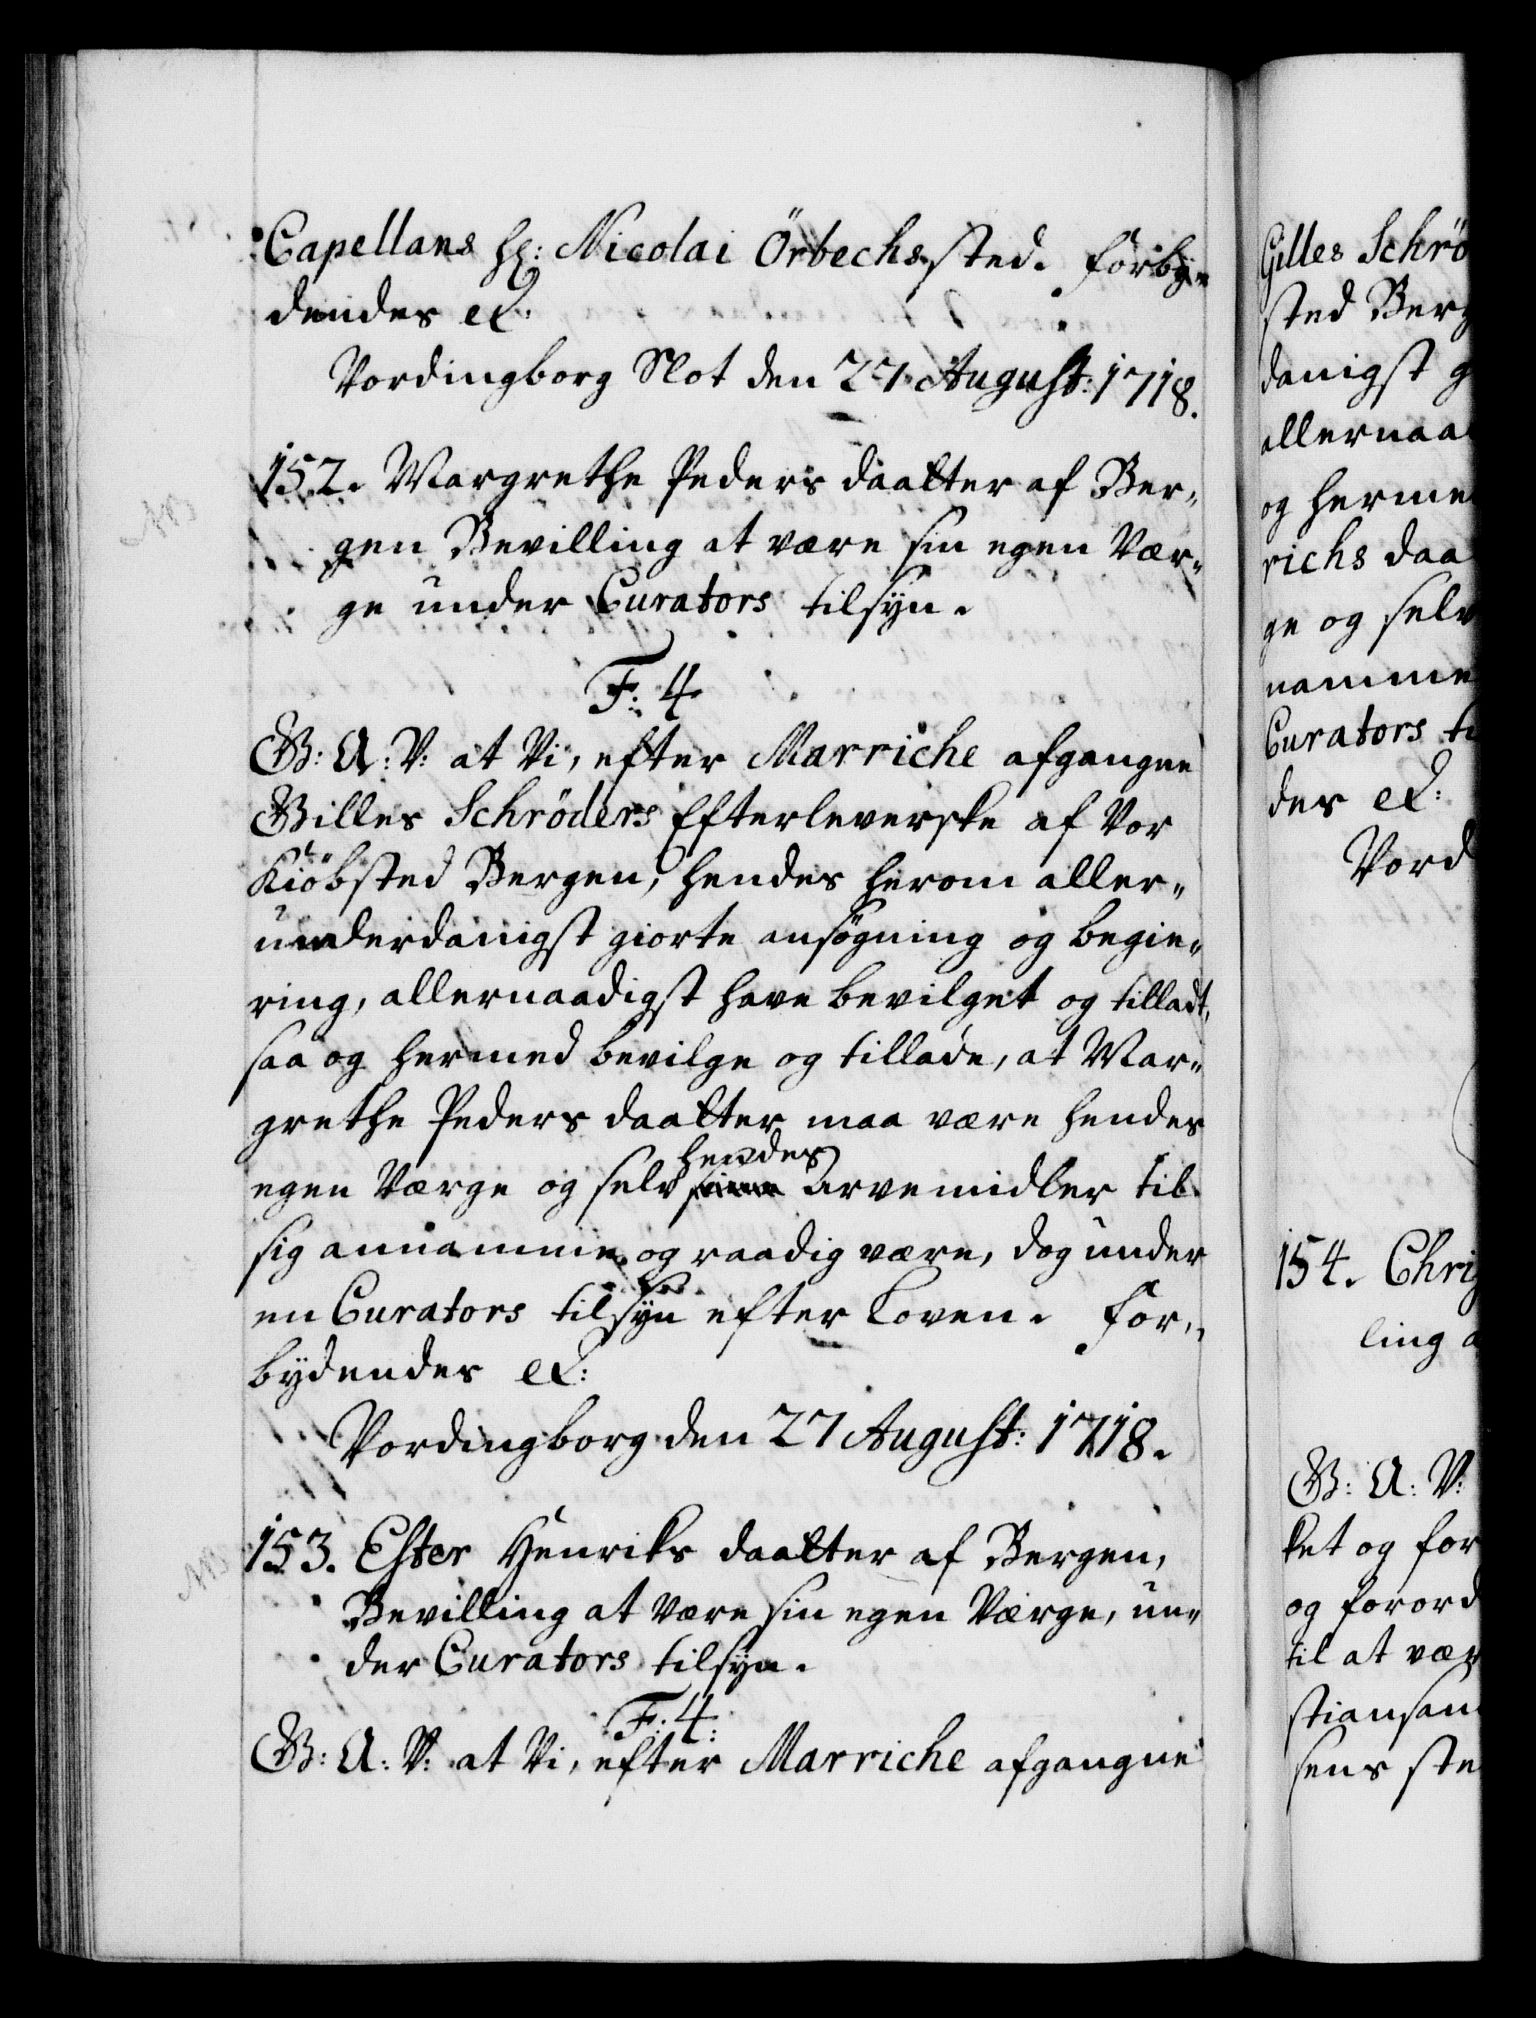 Capellans Hr: Nicolai Örbechs sted. Forby„
dendes etc:
Vordingborg Slot den 27 August: 1718.
152. Margrethe Peders daatter af Ber„
gen Bevilling at være sin egen Vær„
ge under Curators tilsyn.
F: 4
G: A: V: at Vi, efter Marriche afgangne
Gilles Schröders Efterleverske af Vor
Kiöbsted Bergen, hendes herom aller„
underdanigst giorte ansøgning og begie„
ring, allernaadigst have bevilget og tilladt,
saa og hermed bevilge og tillade, at Mar„
grethe Peders daatter maa være hendes
egen Værge og selv hendes arvemidler til
sig annamme og raadig være, dog under
en Curators tilsyn efter Loven. For„
bydendes etc:
Vordingborg den 27 August: 1718.
153. Ester Henriks daatter af Bergen,
Bevilling at være sin egen Værge, un„
der Curators tilsyn.
F: 4:
G: A: V: at Vi, efter Marriche afgangne
NB
NB
Gilles Schrö
sted Berg
danigst g
allernaa
og herme
richs daa
ge og selv
namme
Curators ti
des etc:
Vord
154. Chri
ling a
G: A: V:
ket og for
og forord
til at vær
stiansan
sens ste